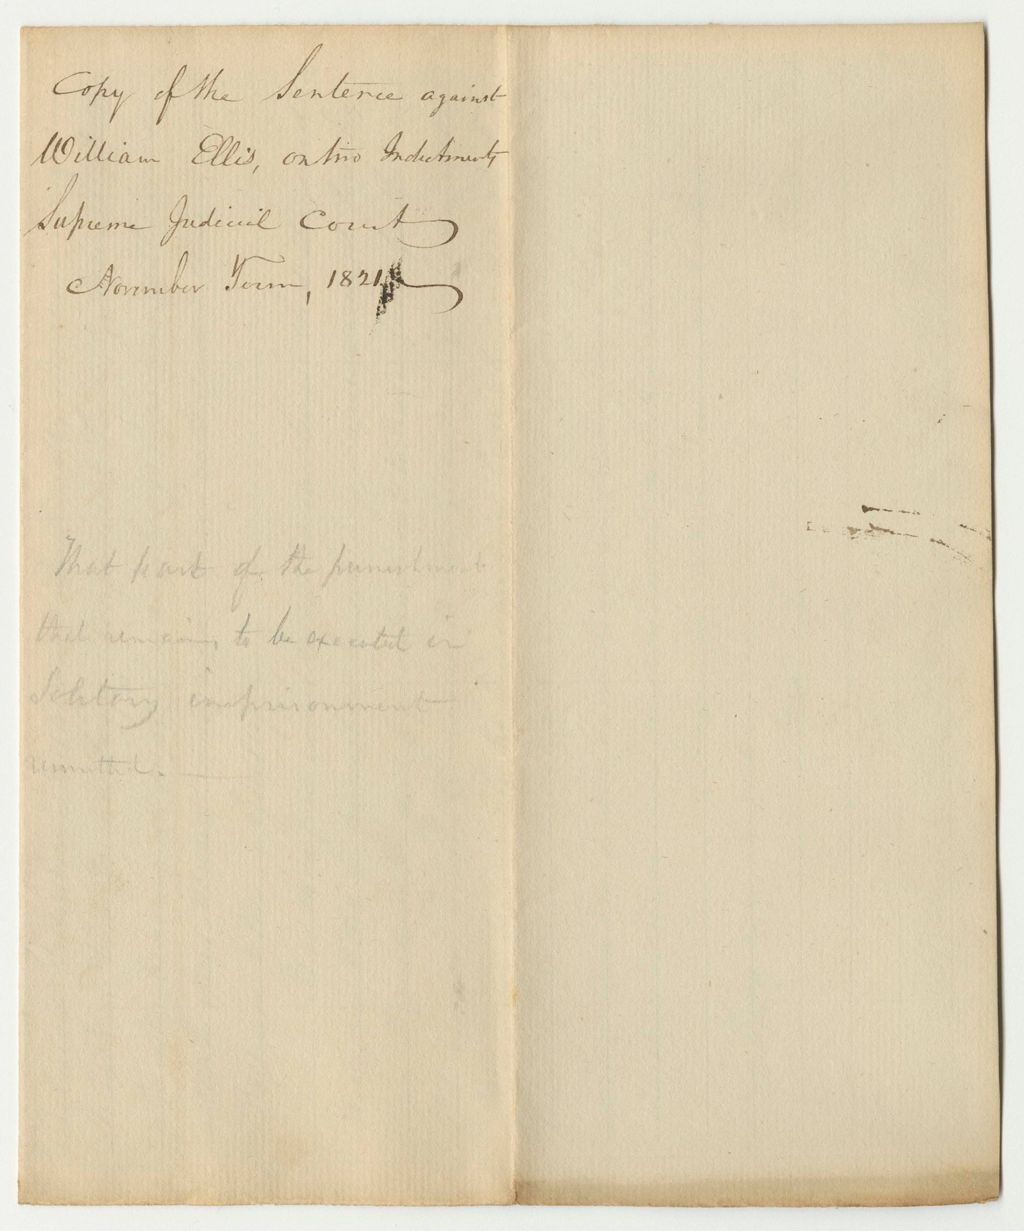 Copy of the Sentence against
William Ellis, on two Indictments
Supreme Judicial Court
November Term, 1821
That part of the punishment
that remains to be executed in
Solitary imprisonment
remitted.